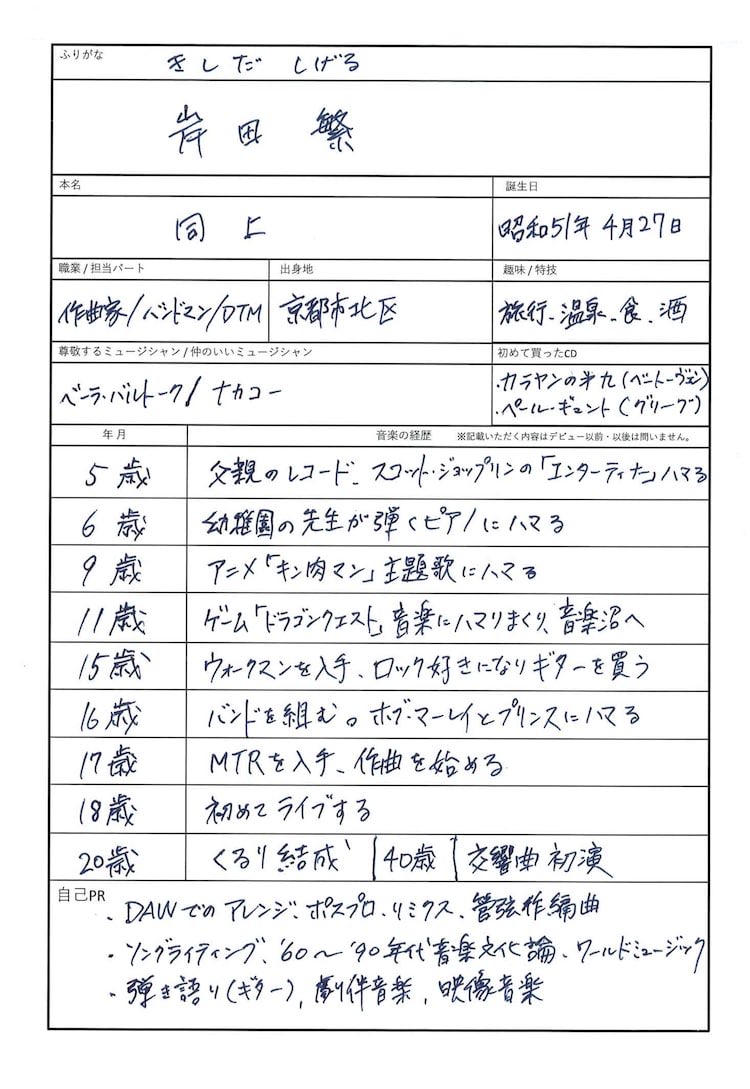 ふりがな
きしだ しげる
岸田 繁
本名
誕生日
同上
昭和51年4月27日
職業 / 担当パート
出身地
趣味 / 特技
作曲家/バンドマン/DTM
京都市北区
旅行、温泉、食、酒
尊敬するミュージシャン / 仲のいいミュージシャン
初めて買ったCD
ベーラ・バルトーク/ナカコー
・カラヤンの第九(ベートーヴェン)
・ペール・ギュント(グリーグ)
年月
音楽の経歴 ※記載いただく内容はデビュー以前・以後は問いません。
5歳 父親のレコード、スコット・ジョップリンの「エンターティナー」ハマる
6歳 幼稚園の先生が弾くピアノにハマる
9歳 アニメ「キン肉マン」主題歌にハマる
11歳 ゲーム「ドラゴンクエスト」音楽にハマりまくり、音楽沼へ
15歳 ウォークマンを入手、ロック好きになりギターを買う
16歳 バンドを組む。ボブ・マーレイとプリンスにハマる
17歳 MTRを入手、作曲を始める
18歳 初めてライブする
20歳 くるり結成 40歳 交響曲初演
自己PR
・DAWでのアレンジ、ポスプロ、リミクス、管弦作編曲
・ソングライティング、'60〜'90年代音楽文化論、ワールドミュージック
・弾き語り(ギター)、劇伴音楽、映像音楽